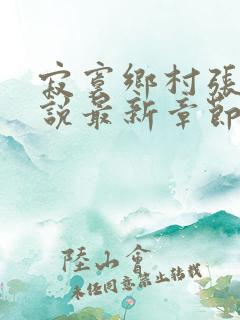 寂寞鄉村張
說最新章節
陸山會
未經同意禁止轉載